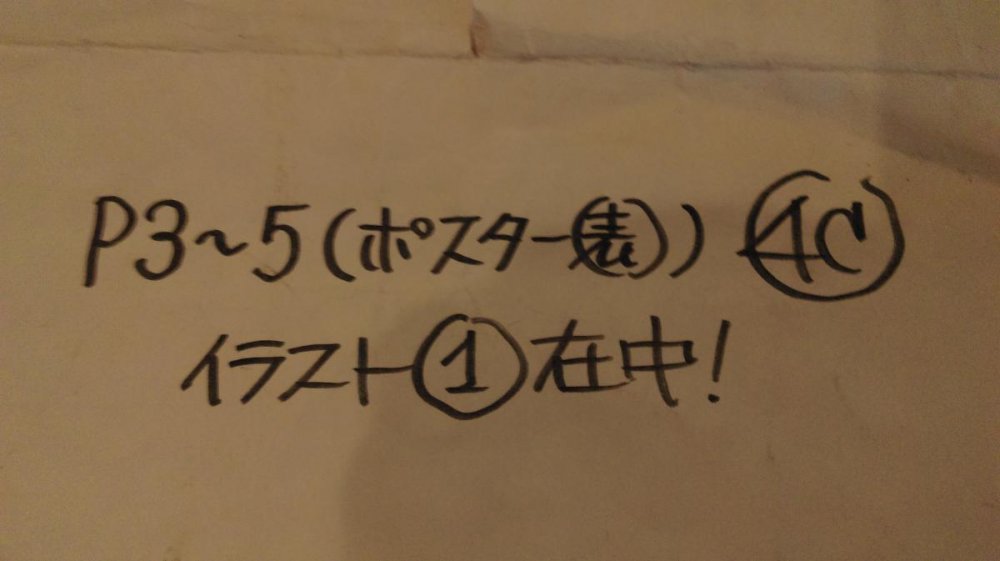 P3~5(ポスター㊤表)) 4C
イラスト①在中!